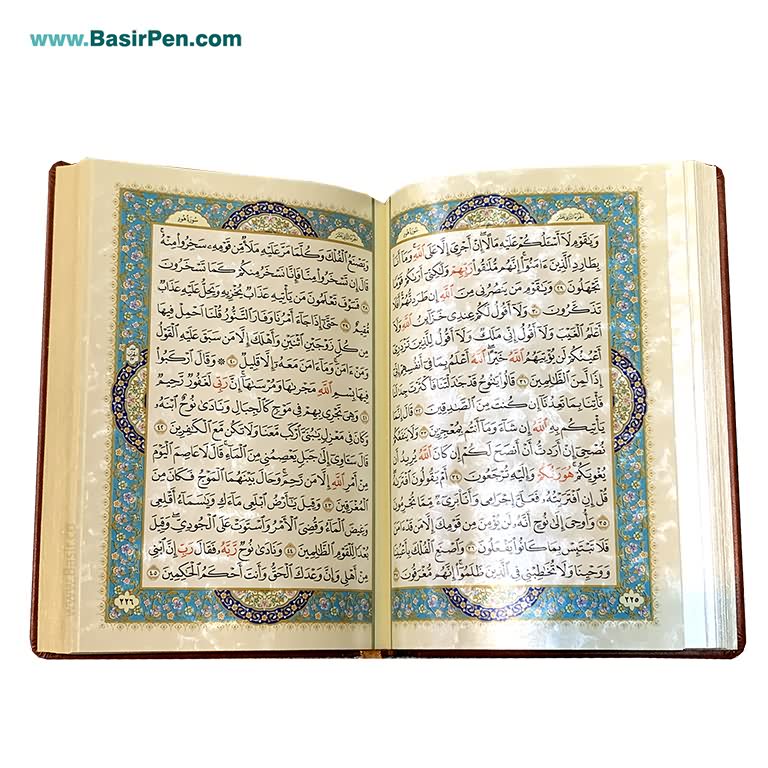 www.BasirPen.com
سورة هود
الجزء الثاني عشر
وَيَٰقَوْمِ لَآ أَسْـَٔلُكُمْ عَلَيْهِ مَالًا ۖ إِنْ أَجْرِىَ إِلَّا عَلَى ٱللَّهِ ۚ وَمَآ أَنَا۠
بِطَارِدِ ٱلَّذِينَ ءَامَنُوٓا۟ ۚ إِنَّهُم مُّلَٰقُوا۟ رَبِّهِمْ وَلَٰكِنِّىٓ أَرَىٰكُمْ قَوْمًا
تَجْهَلُونَ ٢٩ وَيَٰقَوْمِ مَن يَنصُرُنِى مِنَ ٱللَّهِ إِن طَرَدتُّهُمْ ۚ أَفَلَا
تَذَكَّرُونَ ٣٠ وَلَآ أَقُولُ لَكُمْ عِندِى خَزَآئِنُ ٱللَّهِ وَلَآ
أَعْلَمُ ٱلْغَيْبَ وَلَآ أَقُولُ إِنِّى مَلَكٌ وَلَآ أَقُولُ لِلَّذِينَ تَزْدَرِىٓ
أَعْيُنُكُمْ لَن يُؤْتِيَهُمُ ٱللَّهُ خَيْرًا ۖ ٱللَّهُ أَعْلَمُ بِمَا فِىٓ أَنفُسِهِمْ ۖ إِنِّىٓ
إِذًا لَّمِنَ ٱلظَّٰلِمِينَ ٣١ قَالُوا۟ يَٰنُوحُ قَدْ جَٰدَلْتَنَا فَأَكْثَرْتَ جِدَٰلَنَا
فَأْتِنَا بِمَا تَعِدُنَآ إِن كُنتَ مِنَ ٱلصَّٰدِقِينَ ٣٢ قَالَ إِنَّمَا
يَأْتِيكُم بِهِ ٱللَّهُ إِن شَآءَ وَمَآ أَنتُم بِمُعْجِزِينَ ٣٣ وَلَا يَنفَعُكُمْ
نُصْحِىٓ إِنْ أَرَدتُّ أَنْ أَنصَحَ لَكُمْ إِن كَانَ ٱللَّهُ يُرِيدُ أَن
يُغْوِيَكُمْ ۚ هُوَ رَبُّكُمْ وَإِلَيْهِ تُرْجَعُونَ ٣٤ أَمْ يَقُولُونَ ٱفْتَرَىٰهُ ۖ
قُلْ إِنِ ٱفْتَرَيْتُهُۥ فَعَلَىَّ إِجْرَامِى وَأَنَا۠ بَرِىٓءٌ مِّمَّا تُجْرِمُونَ
٣٥ وَأُوحِىَ إِلَىٰ نُوحٍ أَنَّهُۥ لَن يُؤْمِنَ مِن قَوْمِكَ إِلَّا مَن قَدْ ءَامَنَ
فَلَا تَبْتَئِسْ بِمَا كَانُوا۟ يَفْعَلُونَ ٣٦ وَٱصْنَعِ ٱلْفُلْكَ بِأَعْيُنِنَا
وَوَحْيِنَا وَلَا تُخَٰطِبْنِى فِى ٱلَّذِينَ ظَلَمُوٓا۟ ۚ إِنَّهُم مُّغْرَقُونَ ٣٧
٢٢٥
الجزء الثاني عشر
سورة هود
وَيَصْنَعُ ٱلْفُلْكَ وَكُلَّمَا مَرَّ عَلَيْهِ مَلَأٌ مِّن قَوْمِهِۦ سَخِرُوا۟ مِنْهُ ۚ
قَالَ إِن تَسْخَرُوا۟ مِنَّا فَإِنَّا نَسْخَرُ مِنكُمْ كَمَا تَسْخَرُونَ
٣٨ فَسَوْفَ تَعْلَمُونَ مَن يَأْتِيهِ عَذَابٌ يُخْزِيهِ وَيَحِلُّ عَلَيْهِ عَذَابٌ
مُّقِيمٌ ٣٩ حَتَّىٰٓ إِذَا جَآءَ أَمْرُنَا وَفَارَ ٱلتَّنُّورُ قُلْنَا ٱحْمِلْ فِيهَا
مِن كُلٍّ زَوْجَيْنِ ٱثْنَيْنِ وَأَهْلَكَ إِلَّا مَن سَبَقَ عَلَيْهِ ٱلْقَوْلُ
وَمَنْ ءَامَنَ ۚ وَمَآ ءَامَنَ مَعَهُۥٓ إِلَّا قَلِيلٌ ٤٠ ۞ وَقَالَ ٱرْكَبُوا۟
فِيهَا بِسْمِ ٱللَّهِ مَجْر۪ىٰهَا وَمُرْسَىٰهَآ ۚ إِنَّ رَبِّى لَغَفُورٌ رَّحِيمٌ
٤١ وَهِىَ تَجْرِى بِهِمْ فِى مَوْجٍ كَٱلْجِبَالِ وَنَادَىٰ نُوحٌ ٱبْنَهُۥ
وَكَانَ فِى مَعْزِلٍ يَٰبُنَىَّ ٱرْكَب مَّعَنَا وَلَا تَكُن مَّعَ ٱلْكَٰفِرِينَ ٤٢
قَالَ سَـَٔاوِىٓ إِلَىٰ جَبَلٍ يَعْصِمُنِى مِنَ ٱلْمَآءِ ۚ قَالَ لَا عَاصِمَ ٱلْيَوْمَ
مِنْ أَمْرِ ٱللَّهِ إِلَّا مَن رَّحِمَ ۚ وَحَالَ بَيْنَهُمَا ٱلْمَوْجُ فَكَانَ مِنَ
ٱلْمُغْرَقِينَ ٤٣ وَقِيلَ يَٰٓأَرْضُ ٱبْلَعِى مَآءَكِ وَيَٰسَمَآءُ أَقْلِعِى
وَغِيضَ ٱلْمَآءُ وَقُضِىَ ٱلْأَمْرُ وَٱسْتَوَتْ عَلَى ٱلْجُودِىِّ ۖ وَقِيلَ
بُعْدًا لِّلْقَوْمِ ٱلظَّٰلِمِينَ ٤٤ وَنَادَىٰ نُوحٌ رَّبَّهُۥ فَقَالَ رَبِّ إِنَّ ٱبْنِى
مِنْ أَهْلِى وَإِنَّ وَعْدَكَ ٱلْحَقُّ وَأَنتَ أَحْكَمُ ٱلْحَٰكِمِينَ ٤٥
٢٢٦
www.Basir.cn